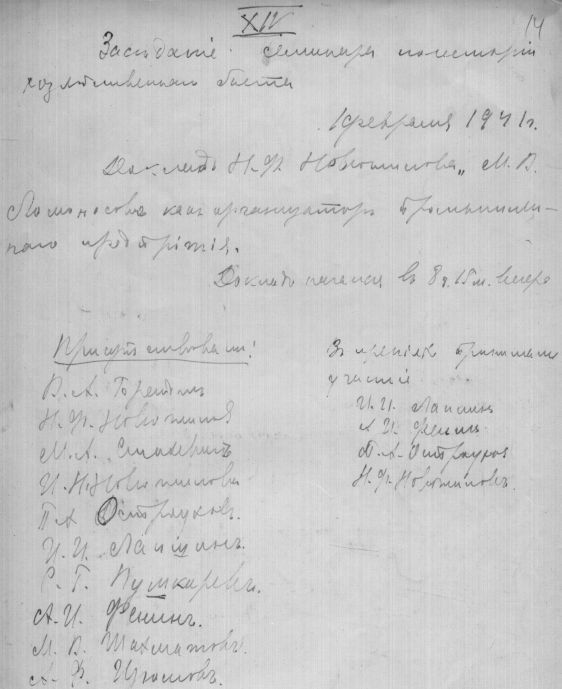 XIV
14
Засѣданіе семинара по исторіи
хозяйственнаго быта
1 февраля 1941 г.
Докладъ Н. Ф. Новожилова „М. В.
Ломоносовъ какъ организаторъ промышлен-
наго предпріятія.
Докладъ начался въ 8 ч. 15 м. вечера
Присутствовали:
В. А.
Н. Ф. Новожиловъ
М. А. Стахевичъ
И. Н. Новожилова
П. А. Остроуховъ.
И. И. Лапшинъ.
С. Г. Пушкаревъ.
А. И. Фенинъ.
М. В. Шахматовъ.
А. Ф. Изюмовъ.
Въ преніяхъ принимали
участіе
И. И. Лапшинъ
А. И. Фенинъ
П. А. Остроуховъ
Н. Ф. Новожиловъ.